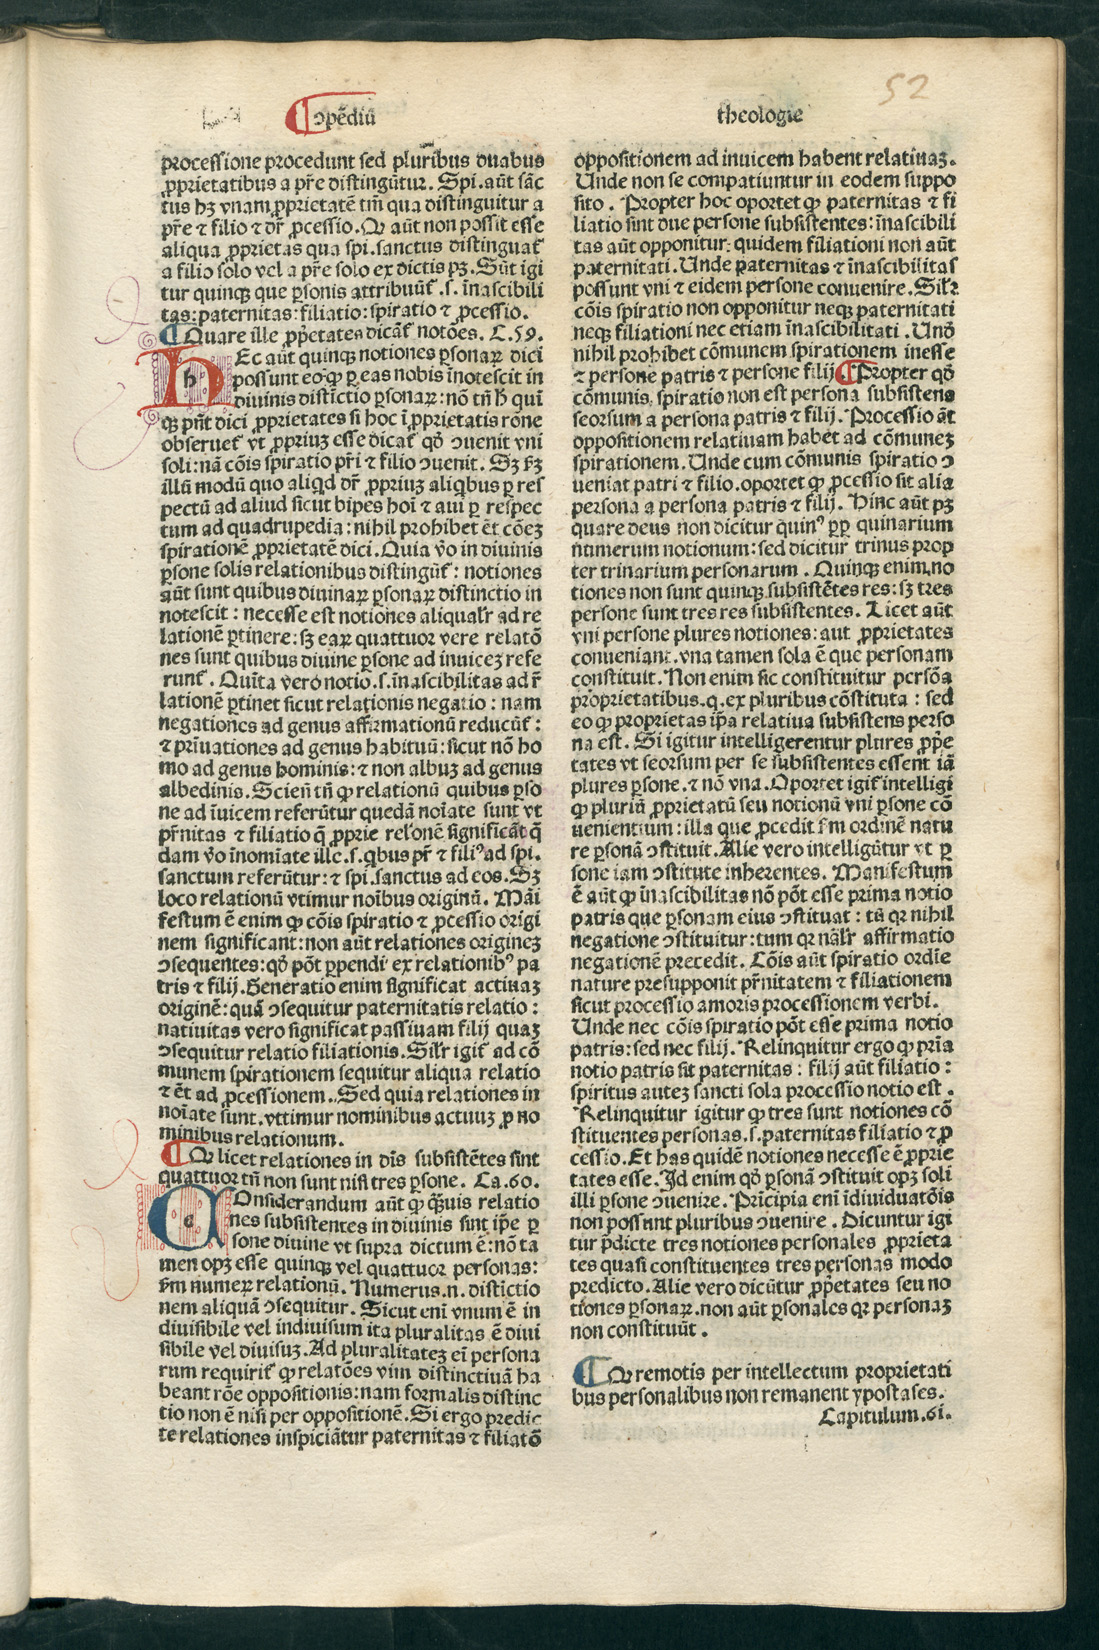 52
ↄpēdiū
theologie
processione procedunt sed pluribus duabus
ꝓprietatibus a pr̄e distingūtur. Spi. aūt sāc
tus hꝫ vnam ꝓprietatē tm̄ qua distinguitur a
pr̄e ⁊ filio ⁊ dr̄ ꝓcessio. Ꝙ aūt non possit esse
aliqua ꝓprietas qua spi. sanctus distinguat᷑
a filio solo vel a pr̄e solo ex dictis pꝫ. Sūt igi
tur quinqꝫ que ꝑsonis attribuūt᷑ .s. īnascibili
tas: paternitas: filiatio: spiratio ⁊ ꝓcessio.
Quare ille ꝓp̄etates dicāt᷑ notōes. C.59.
h
Ec aūt quinqꝫ notiones ꝑsonaꝝ dici
possunt eo ꝙ ꝑ eas nobis īnotescit in
diuinis distīctio ꝑsonaꝝ: nō tn̄ h̄ quī
qꝫ pn̄t dici ꝓprietates si hoc ī ꝓprietatis rōne
obseruet᷑ vt ꝓpriuꝫ esse dicat᷑ qd̄ ↄuenit vni
soli: nā cōis spiratio pr̄i ⁊ filio ↄuenit. Sꝫ ẜꝫ
illū modū quo aliqd dr̄ ꝓpriuꝫ aliqbus ꝑ res
pectū ad aliud sicut bipes hoī ⁊ aui ꝑ respec
tum ad quadrupedia: nihil prohibet ēt cōeꝫ
spirationē ꝓprietatē dici. Quia v̄o in diuinis
ꝑsone solis relationibus distingūt᷑: notiones
aūt sunt quibus diuinaꝝ ꝑsonaꝝ distinctio in
notescit: necesse est notiones aliqualr̄ ad re
lationē ꝑtinere: sꝫ eaꝝ quattuor vere relatō
nes sunt quibus diuine ꝑsone ad inuiceꝫ refe
runt᷑. Quīta vero notio .s. īnascibilitas ad r̄
lationē ꝑtinet sicut relationis negatio: nam
negationes ad genus affirmationū reducūt᷑:
⁊ prīuationes ad genus habituū: sicut nō ho
mo ad genus hominis: ⁊ non albuꝫ ad genus
albedinis. Sciен̄ tn̄ ꝙ relationū quibus ꝑso
ne ad īuicem referūtur quedā noīate sunt vt
pr̄nitas ⁊ filiatio q̄ ꝓprie relōnē significāt q̄
dam v̄o īnomīate ille .s. qbus pr̄ ⁊ filiꝰ ad spi.
sanctum referūtur: ⁊ spi. sanctus ad eos. Sꝫ
loco relationū vtimur noībus originū. Māi
festum ē enim ꝙ cōis spiratio ⁊ ꝓcessio origi
nem significant: non aūt relationes origineꝫ
ↄsequentes: qd̄ pōt ꝑpendi ex relationibꝰ pa
tris ⁊ filij. Generatio enim significat actiuaꝫ
originē: quā ↄsequitur paternitatis relatio:
natiuitas vero significat passiuam filij quaꝫ
ↄsequitur relatio filiationis. Silr̄ igit᷑ ad cō
munem spirationem sequitur aliqua relatio
⁊ ēt ad ꝓcessionem. Sed quia relationes in
noīate sunt. vtimur nominibus actuuꝫ ꝓ no
minibus relationum.
Ꝙ licet relationes in dīs subsistētes sint
quattuor tn̄ non sunt nisi tres ꝑsone. Ca.60.
c
Onsiderandum aūt ꝙ q̄uis relatio
nes subsistentes in diuinis sint ip̄e ꝑ
sone diuine vt supra dictum ē: nō ta
men opꝫ esse quinqꝫ vel quattuor personas:
ẜm numeꝝ relationū. Numerus .n. distīctio
nem aliquā ↄsequitur. Sicut enī vnum ē in
diuisibile vel indiuisum ita pluralitas ē diui
sibile vel diuisuꝫ. Ad pluralitateꝫ eī persona
rum requirit᷑ ꝙ relatōes vim distinctiuā ha
beant rōe oppositionis: nam formalis distinc
tio non ē nisi per oppositionē. Si ergo predic
te relationes inspiciātur paternitas ⁊ filiatō
oppositionem ad inuicem habent relatiuaꝫ.
Unde non se compatiuntur in eodem suppo
sito. Propter hoc oportet ꝙ paternitas ⁊ fi
liatio sint due persone subsistentes: īnascibili
tas aūt opponitur quidem filiationi non aūt
paternitati. Unde paternitas ⁊ īnascibilitas
possunt vni ⁊ eidem persone conuenire. Silr̄
cōis spiratio non opponitur neqꝫ paternitati
neqꝫ filiationi nec etiam īnascibilitati. Unō
nihil prohibet cōmunem spirationem inesse
⁊ persone patris ⁊ persone filij. Propter qd̄
cōmunis spiratio non est persona subsistens
seorsum a persona patris ⁊ filij. Processio āt
oppositionem relatiuam habet ad cōmuneꝫ
spirationem. Unde cum cōmunis spiratio ↄ
ueniat patri ⁊ filio. oportet ꝙ ꝓcessio sit alia
persona a persona patris ⁊ filij. Hinc aūt pꝫ
quare deus non dicitur quinꝰ ꝓp̄ quinarium
numerum notionum: sed dicitur trinus prop
ter trinarium personarum. Quinqꝫ enim no
tiones non sunt quinqꝫ subsistētes res: sꝫ tres
persone sunt tres res subsistentes. Licet aūt
vni persone plures notiones: aut ꝓprietates
conueniant. vna tamen sola ē que personam
constituit. Non enim sic constituitur persōa
proprietatibus .q. ex pluribus cōstituta: sed
eo ꝙ proprietas ip̄a relatiua subsistens perso
na est. Si igitur intelligerentur plures ꝓp̄e
tates vt seorsum per se subsistentes essent iā
plures ꝑsone. ⁊ nō vna. Oportet igit᷑ intelligi
ꝙ pluriū ꝓprietatū seu notionū vni ꝑsone cō
uenientium: illa que ꝓcedit ẜm ordinē natu
re ꝑsonā ↄstituit. Alie vero intelligūtur vt ꝑ
sone iam ↄstitute inherentes. Manifestum
ē aūt ꝙ īnascibilitas nō pōt esse prima notio
patris que ꝑsonam eius ↄstituat: tū qꝛ nihil
negatione ↄstituitur: tum qꝛ nālr̄ affirmatio
negationē precedit. Cōis aūt spiratio ordīe
nature presupponit pr̄nitatem ⁊ filiationem
sicut processio amoris processionem verbi.
Unde nec cōis spiratio pōt esse prima notio
patris: sed nec filij. Relinquitur ergo ꝙ prīa
notio patris sit paternitas: filij aūt filiatio:
spiritus auteꝫ sancti sola processio notio est.
Relinquitur igitur ꝙ tres sunt notiones cō
stituentes personas .s. paternitas filiatio ⁊ ꝓ
cessio. Et has quidē notiones necesse ē ꝓprie
tates esse. Id enim qd̄ ꝑsonā ↄstituit opꝫ soli
illi ꝑsone ↄuenire. Prīcipia enī īdiuiduatōis
non possunt pluribus ↄuenire. Dicuntur igi
tur p̄dicte tres notiones personales ꝓprieta
tes quasi constituentes tres personas modo
predicto. Alie vero dicūtur ꝓp̄etates seu no
tiones ꝑsonaꝝ. non aūt ꝑsonales qꝛ personaꝫ
non constituūt.
Ꝙ remotis per intellectum proprietati
bus personalibus non remanent ypostases.
Capitulum.61.